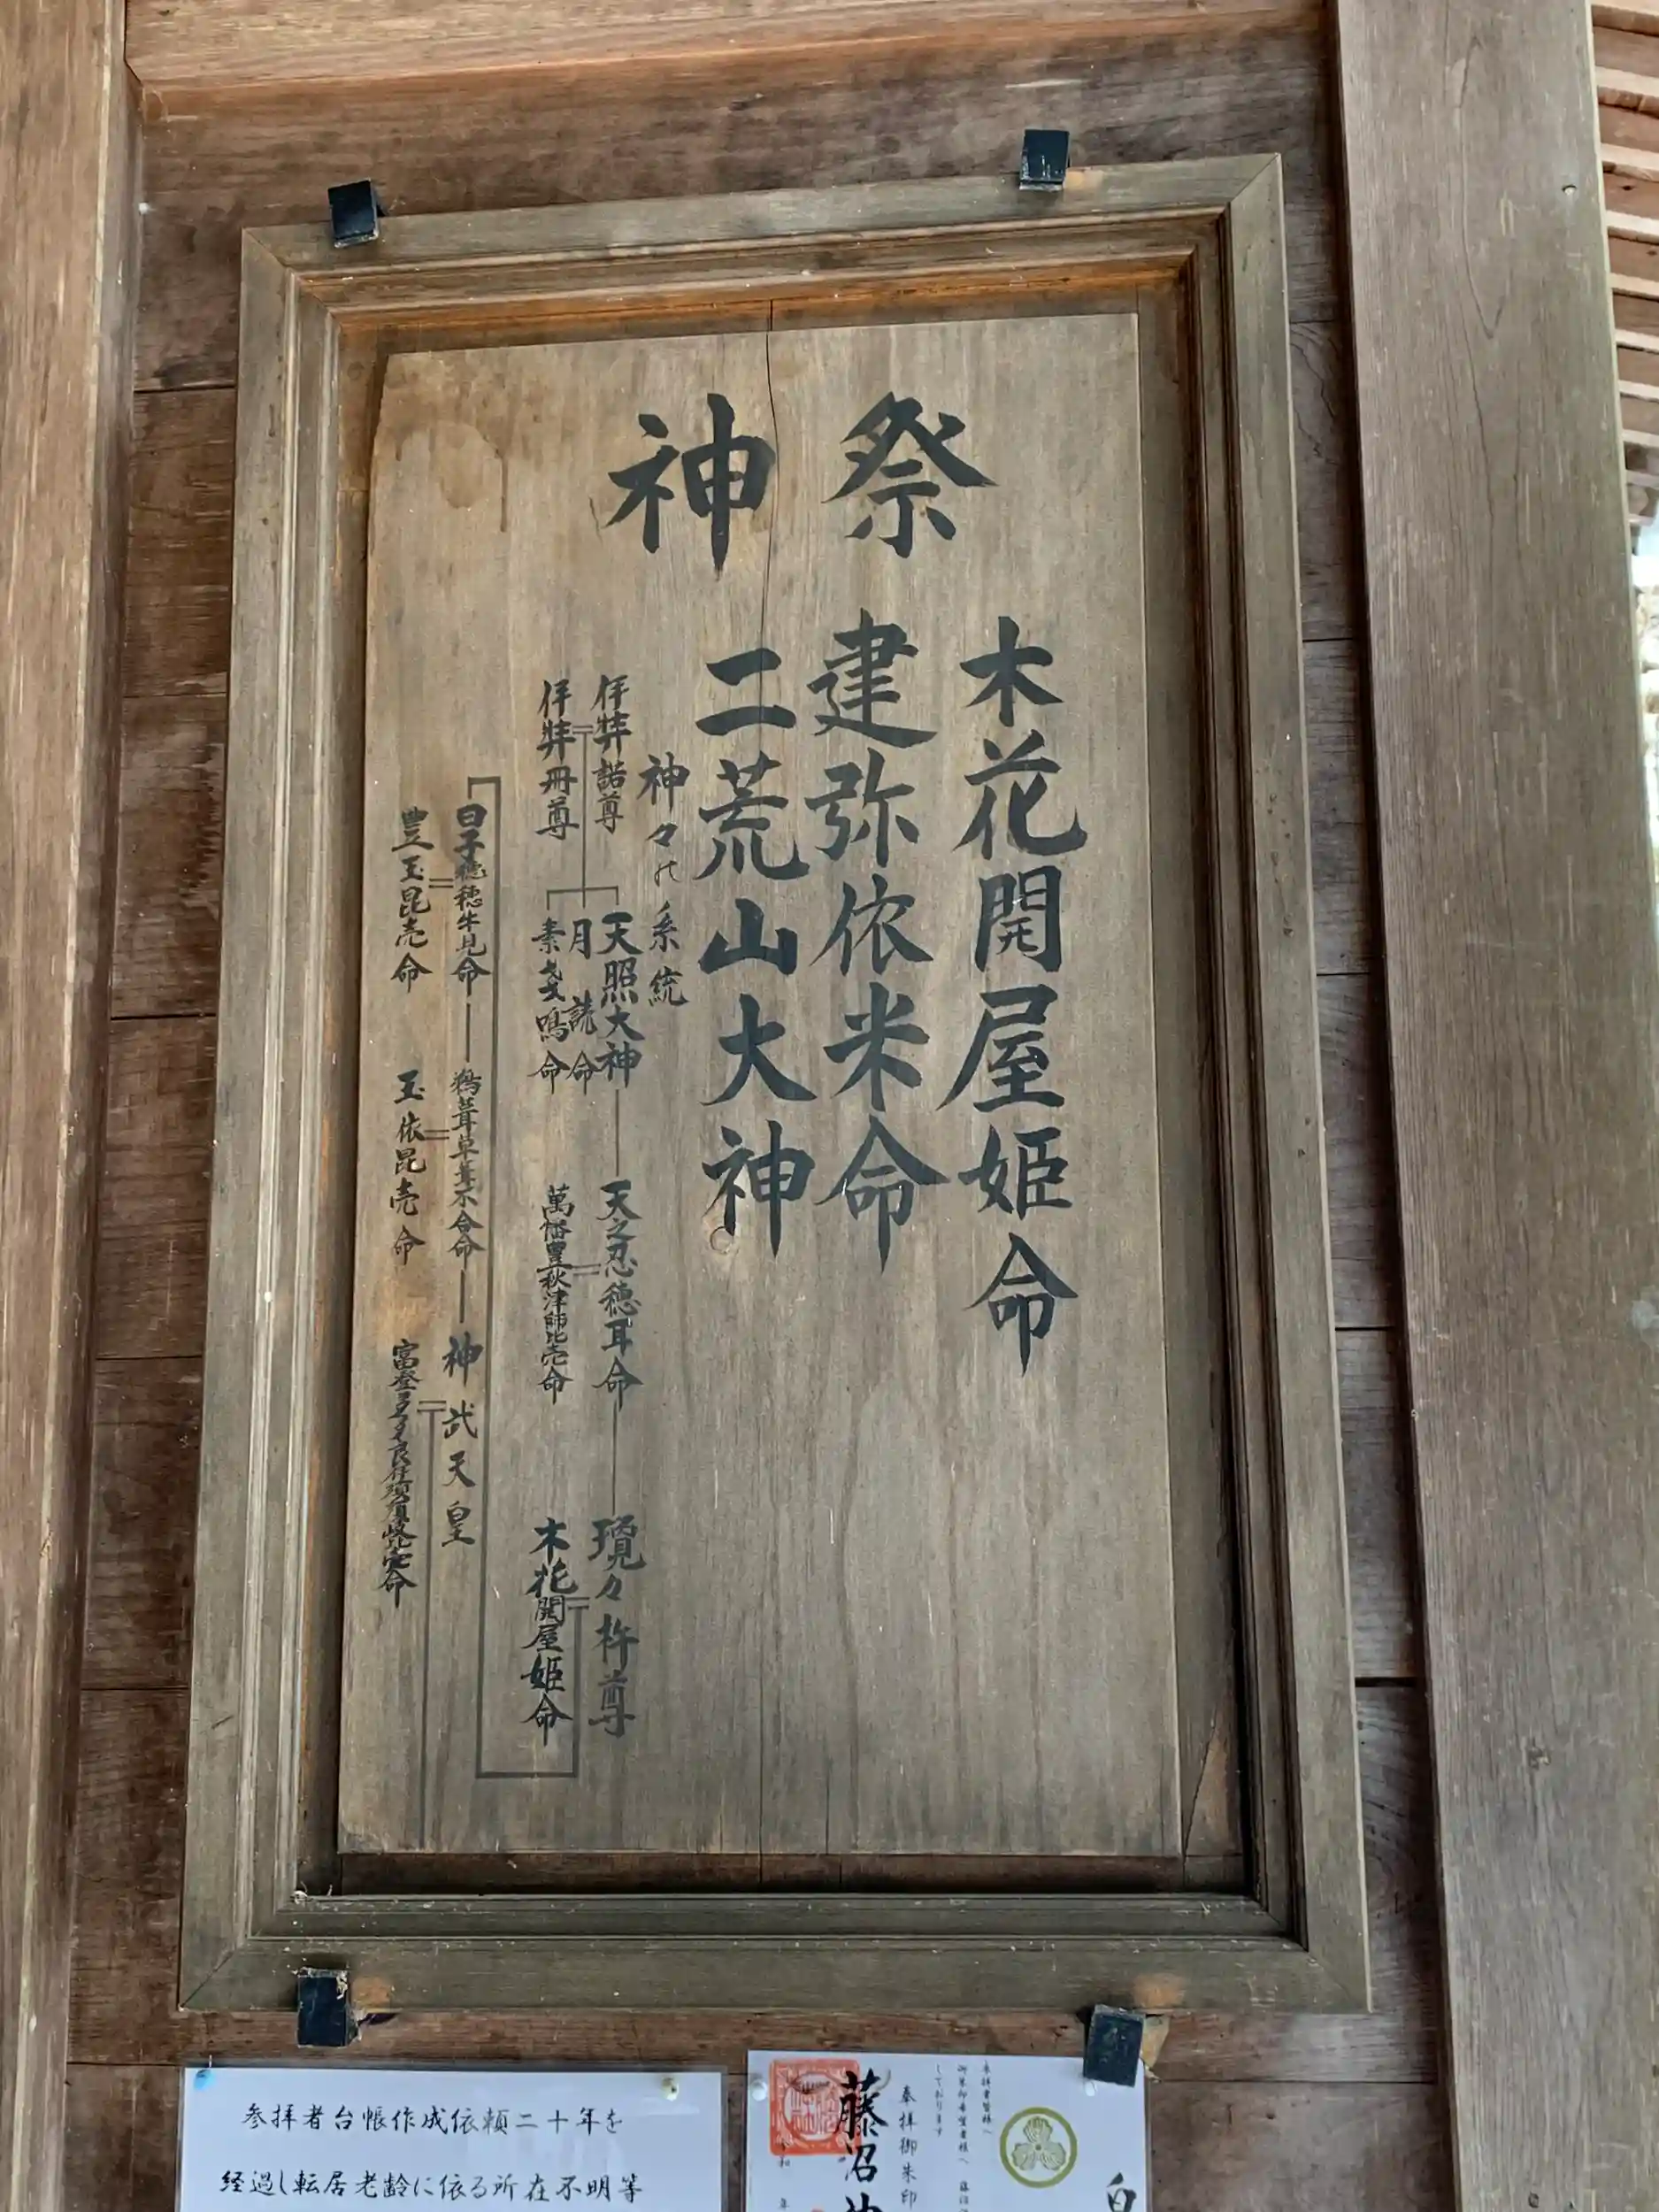 祭神
木花開屋姫命
建弥依米命
二荒山大神
神々の系統
伊弉諾尊
伊弉冊尊
天照大神
月読命
素戔鳴命
天之忍穂耳命
萬幡豊秋津師比売命
瓊々杵尊
木花開屋姫命
日子穂穂手見命
豊玉昆売命
鵜葺草葺不合命
玉依昆売命
神武天皇
参拝者台帳作成依頼二十年を
経過し転居老齢に依る所在不明等
奉拝御朱印
藤沼神